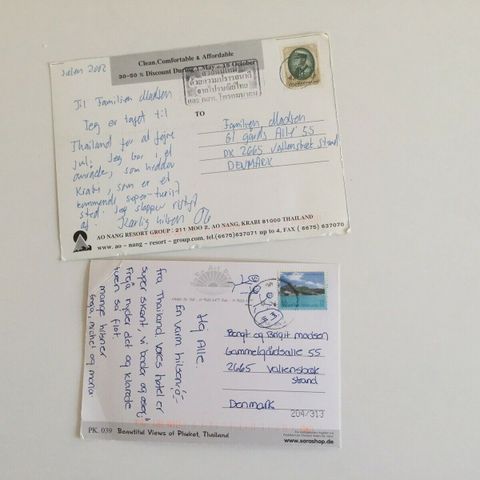 Clean, Comfortable & Affordable
30-50 % Discount During 1 May - 15 October
Julen 2002
Til Familien Madsen
Jeg er taget til
Thailand for at fejre
jul. Jeg bor i et
område, som hedder
Krabi, som er et
kommende super turist
sted. Jeg slapper rigtigt
af. Kærlig hilsen
TO
Familien Madsen
Gl gårds Alle 55
DK 2665 Vallensbæk Strand
DENMARK
AO NANG RESORT GROUP : 211 MOO 2, AO NANG, KRABI 81000 THAILAND
www. ao - nang - resort - group.com, tel.(6675)637071 up to 4, FAX ( 6675) 637070
Hej Alle.
En varm hilsen
fra Thailand. Vores hotel er
super skønt, vi bader og
Freja nyder det og klarede
turen så flot.
mange hilsner
Freja, Michel og Maria
Bengt og Birgit Madsen
Gammelgårdsalle 55
2665 Vallensbæk
Strand
Denmark
204/313
PK. 039 Beautiful Views of Phuket, Thailand
www.soroshop.de